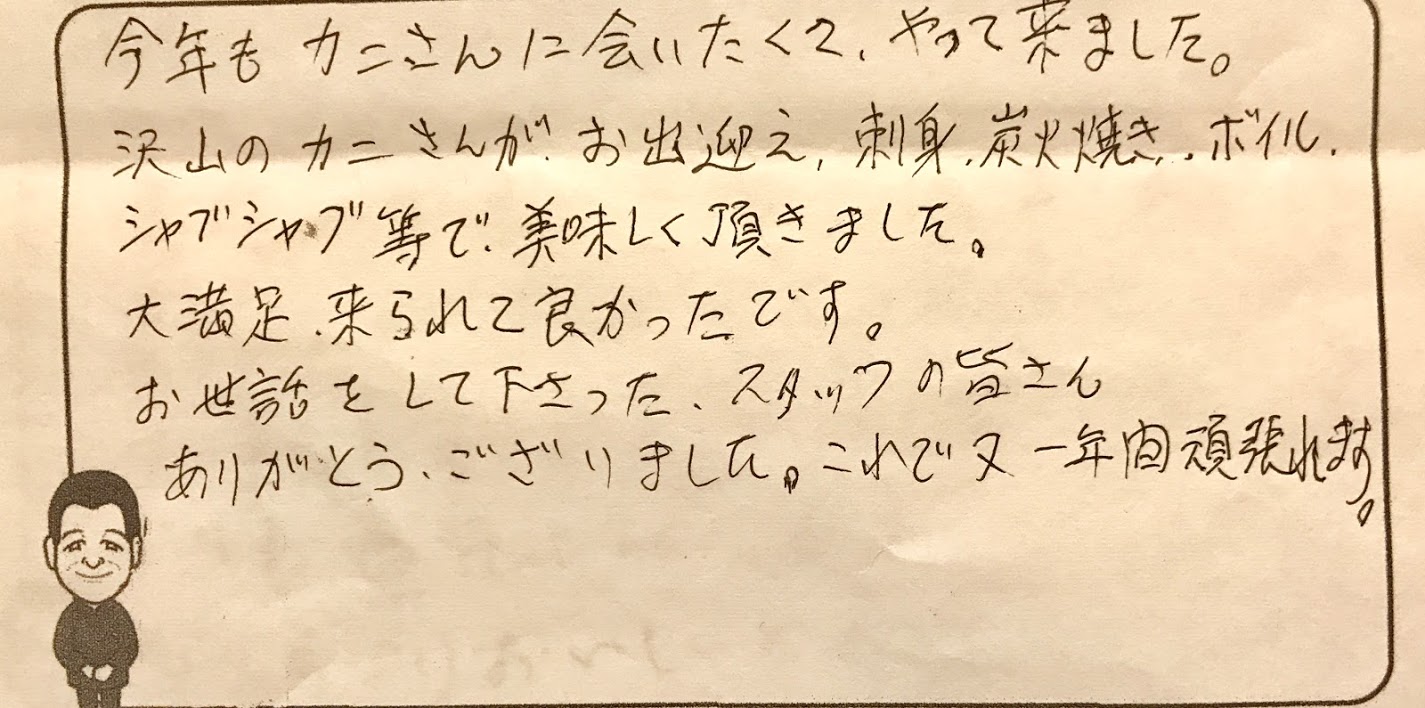 今年もカニさんに会いたくて、やって来ました。
沢山のカニさんが、お出迎え、刺身、炭火焼き、ボイル、
シャブシャブ等で、美味しく頂きました。
大満足、来られて良かったです。
お世話をして下さった、スタッフの皆さん
ありがとう、ございました。これで又一年間頑張れます。